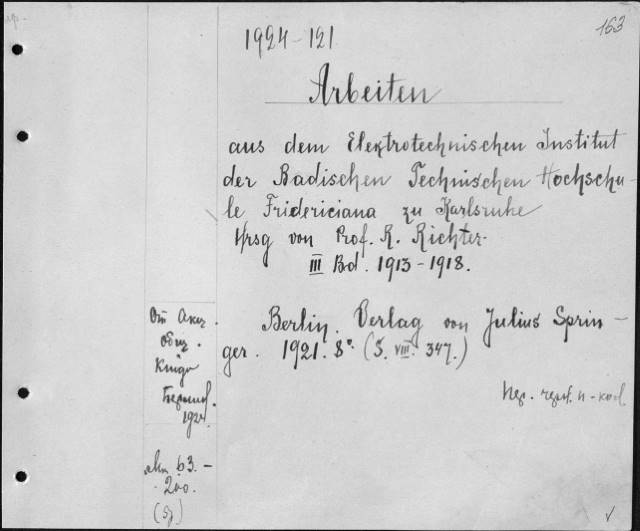 163
1924-121
Arbeiten
aus dem Elektrotechnischen Institut
der Badischen Technischen Hochschu-
le Fridericiana zu Karlsruhe
Hrsg von Prof. R. Richter.
III Bd. 1913-1918.
Berlin. Verlag von Julius Sprin-
ger. 1921. 8°. (S. VIII. 347.)
От Акц.
общ.
Книга
1924.
63.-
200.